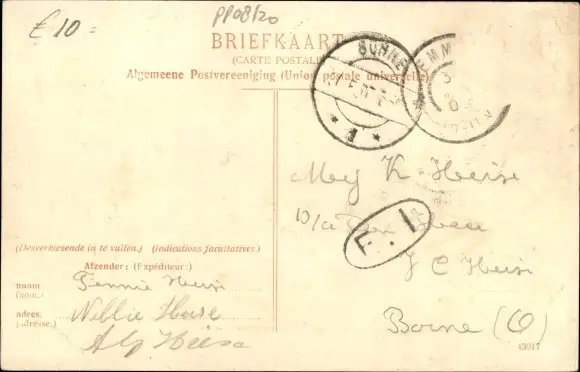 £ 10 =
PP08/20
BRIEFKAART
(CARTE POSTALE)
Algemeene Postvereeniging (Union postale universelle)
BORNE
EMM
3
Mej K Heise
J C Heise
Borne (O)
F. I
(Desverkiesende in te vullen.) (Indications facultatives)
Afzender: (Expéditeur:)
naam Fennie Heise
(nom.)
adres. Nellie Heise
(adresse.)
43017